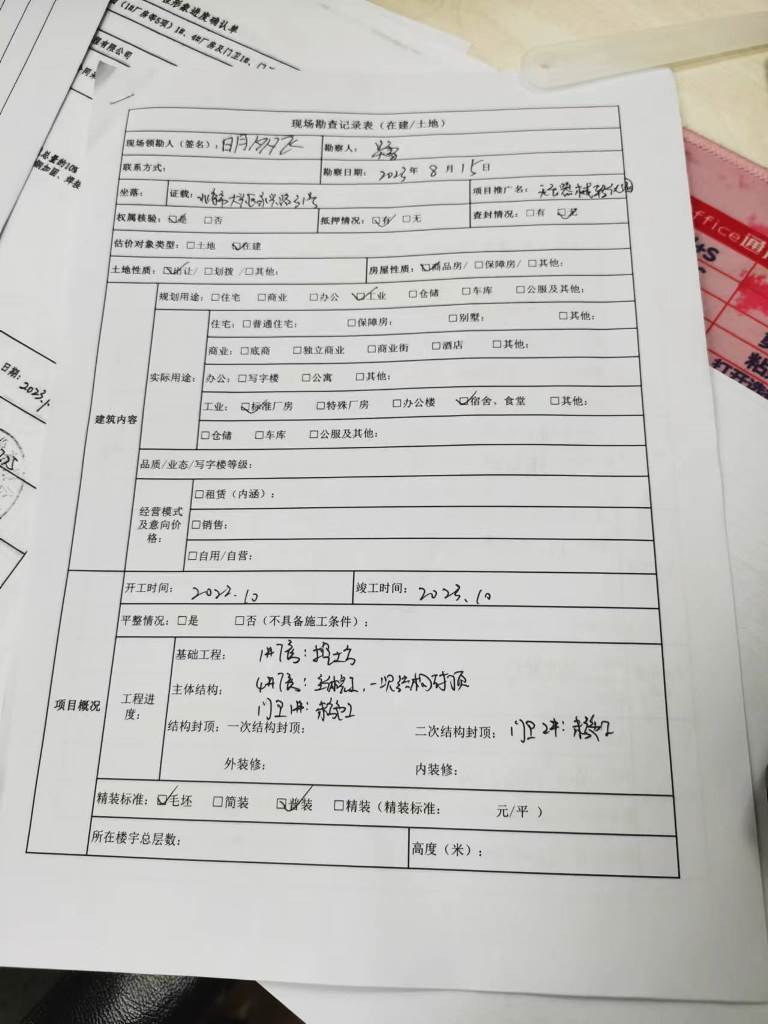 形象进度确认单
(1#厂房等5项) 1#、4#厂房及门卫1#、门
有限公司
总量的10%
日期:
2023.
office
现场勘查记录表（在建/土地）
现场领勘人（签名）:
勘察人:
联系方式:
勘察日期: 2023年 8 月 15日
坐落:
证载: 北京市大兴区永兴路31号
项目推广名:
权属核验: ☑是 □否
抵押情况: ☑有 □无
查封情况: □有 ☑无
估价对象类型: □土地 ☑在建
土地性质: ☑出让/ □划拨 /□其他:
房屋性质: ☑商品房/ □保障房/ □其他:
建筑内容
规划用途: □住宅 □商业 □办公 ☑工业 □仓储 □车库 □公服及其他:
实际用途:
住宅: □普通住宅: □保障房: □别墅: □其他:
商业: □底商 □独立商业 □商业街 □酒店 □其他:
办公: □写字楼 □公寓 □其他:
工业: ☑标准厂房 □特殊厂房 □办公楼 ☑宿舍、食堂 □其他:
□仓储 □车库 □公服及其他:
品质/业态/写字楼等级:
经营模式及意向价格:
□租赁（内涵）:
□销售:
□自用/自营:
项目概况
开工时间: 2022.10
竣工时间: 2023.10
平整情况: □是 □否（不具备施工条件）:
工程进度:
基础工程: 1#厂房: 挖土方
主体结构: 4#厂房: 一次结构封顶
门卫1#: 未施工
结构封顶: 一次结构封顶:
二次结构封顶: 门卫2#: 未施工
外装修:
内装修:
精装标准: ☑毛坯 □简装 ☑普装 □精装（精装标准: 元/平 ）
所在楼宇总层数:
高度（米）: